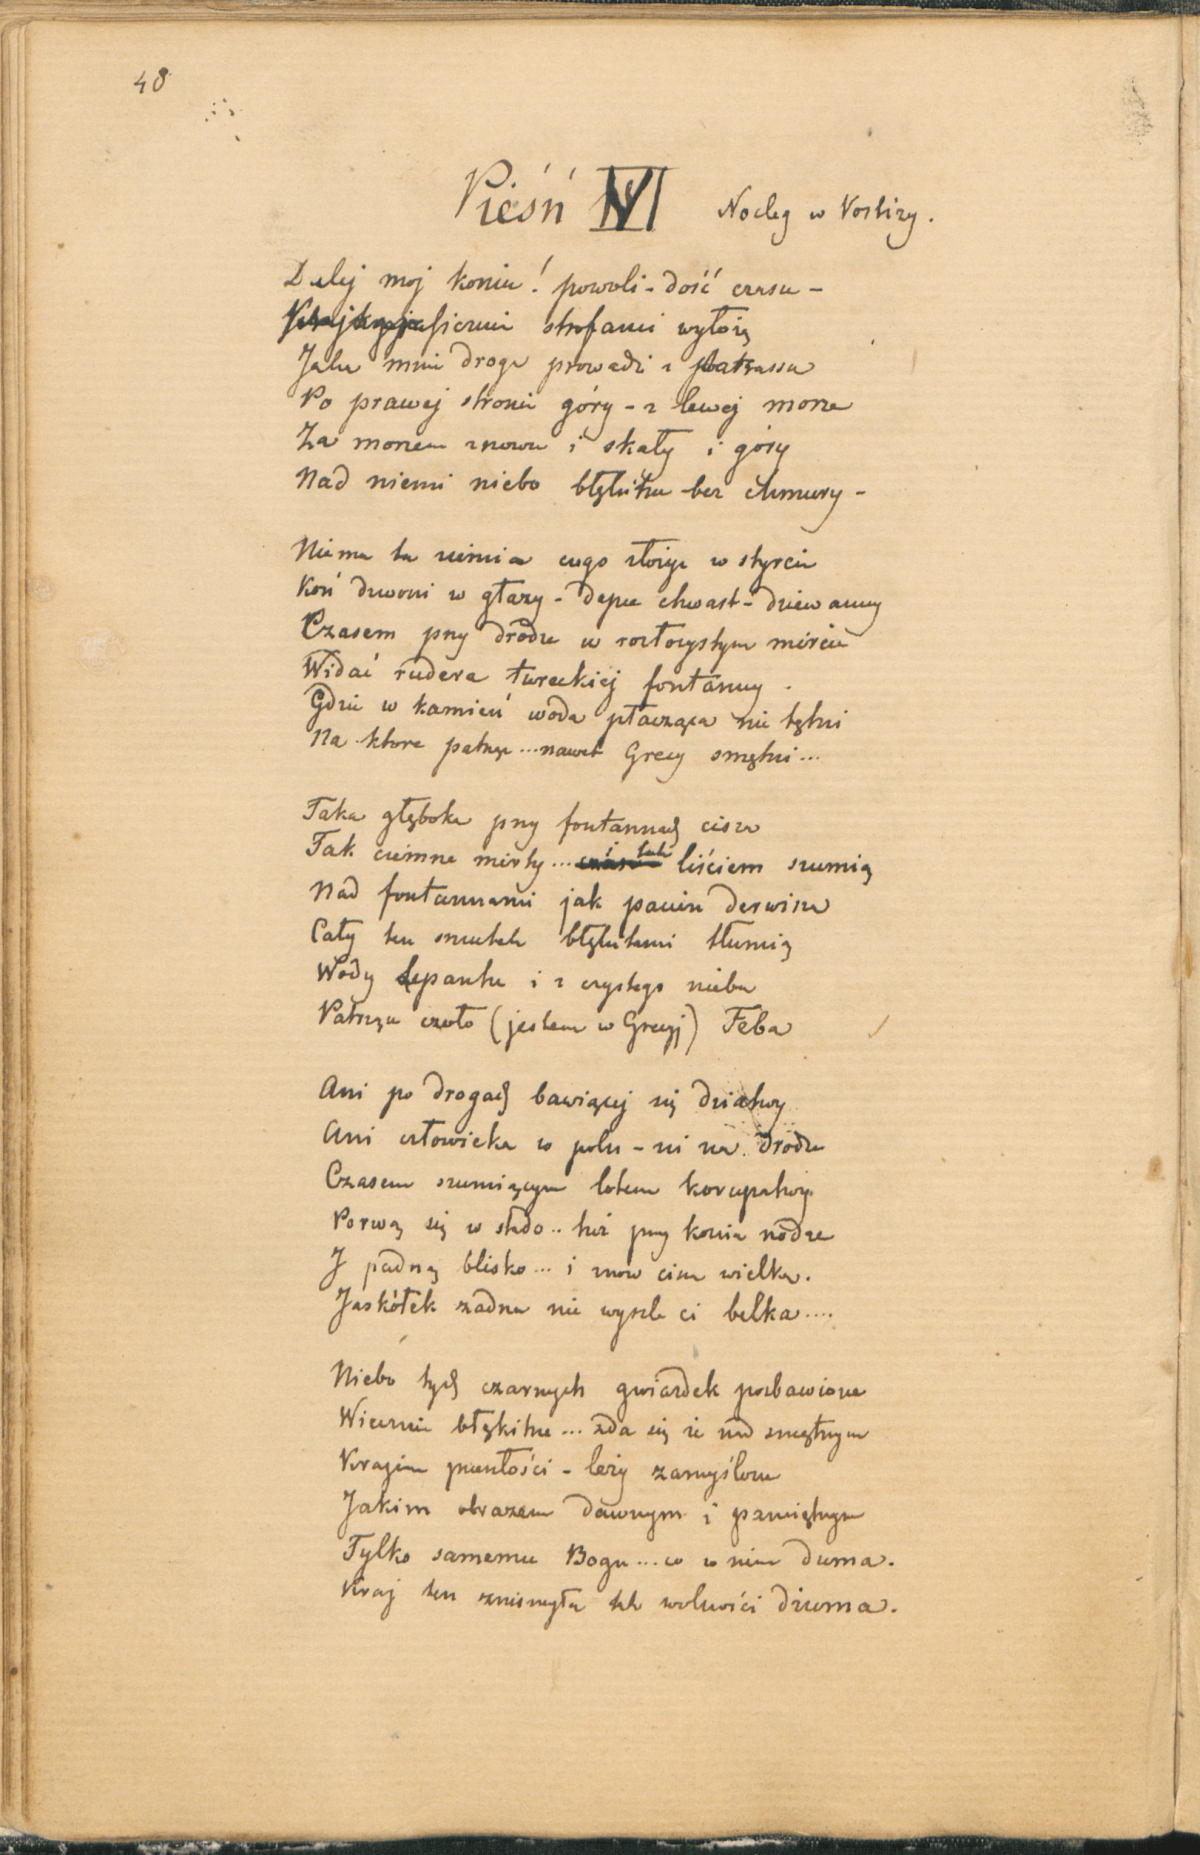 48
Pieśń VI Nocleg w Vostizy.
Dalej moj koniu! powoli - dość czasu -
sześciemi strofami wyłożę
Jaka mnie droga prowadzi z patrassu
Po prawej stronie góry - z lewej morze
Za morzem znowu i skały i góry
Nad niemi niebo błękitne bez chmury -
Niema tu ziemia czego złożyć w styrcie
Koń dzwoni w głazy - depce chwast - dziewanny
Czasem przy drodze w rozłożystym mircie
Widać rudera tureckiej fontanny.
Gdzie w kamień woda płacząca nie tętni
Na ktore patrząc ... nawet Grecy smętni ...
Taka głęboka przy fontannach cisza
Tak ciemne mirty ... i tak liściem szumią
Nad fontannami jak pacierz derwisza
Cały ten smutek błękitami tłumią
Wody Lepantu i z czystego nieba
Patrzące czoło (jestem w Grecyj) Feba
Ani po drogach bawiącej się dziatwy
Ani człowieka w polu - ni na drodze
Czasem szumiącym lotem kuropatwy
Porwą się w stado .. tuż przy konia nodze
I padną blisko ... i znow cisza wielka.
Jaskółek żadna nie wyszle ci belka ....
Niebo tych czarnych gwiazdek pozbawione
Wiecznie błękitne ... zda się że nad smętnym
Krajem przeszłości - leży zamyślone
Jakim obrazem dawnym i pamiętnym
Tylko samemu Bogu ... co w nim duma.
Kraj ten zniszczyła tak wolności dżuma.